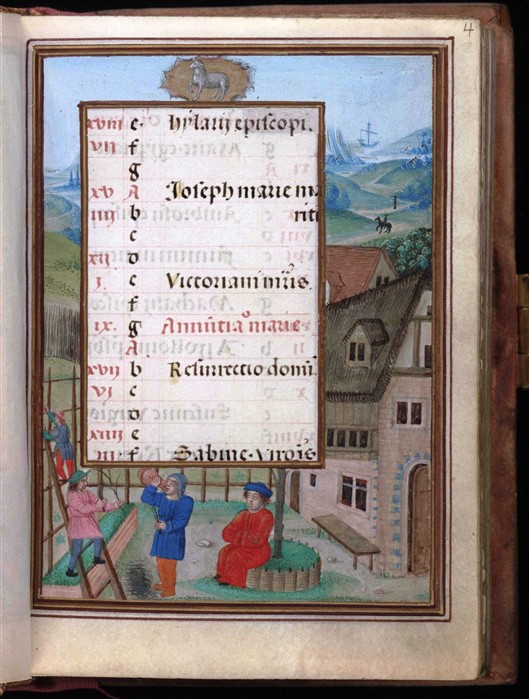 4
xviii e hylarij episcopi.
vii f
g
xv A Joseph marie ma
iiii b riti
c
xii d
i. e Victoriani mris.
f
ix. g Annutiao marie
A
xvii b Resurrectio domi
vi c
d
xiiii e
iii f Sabine. virgis